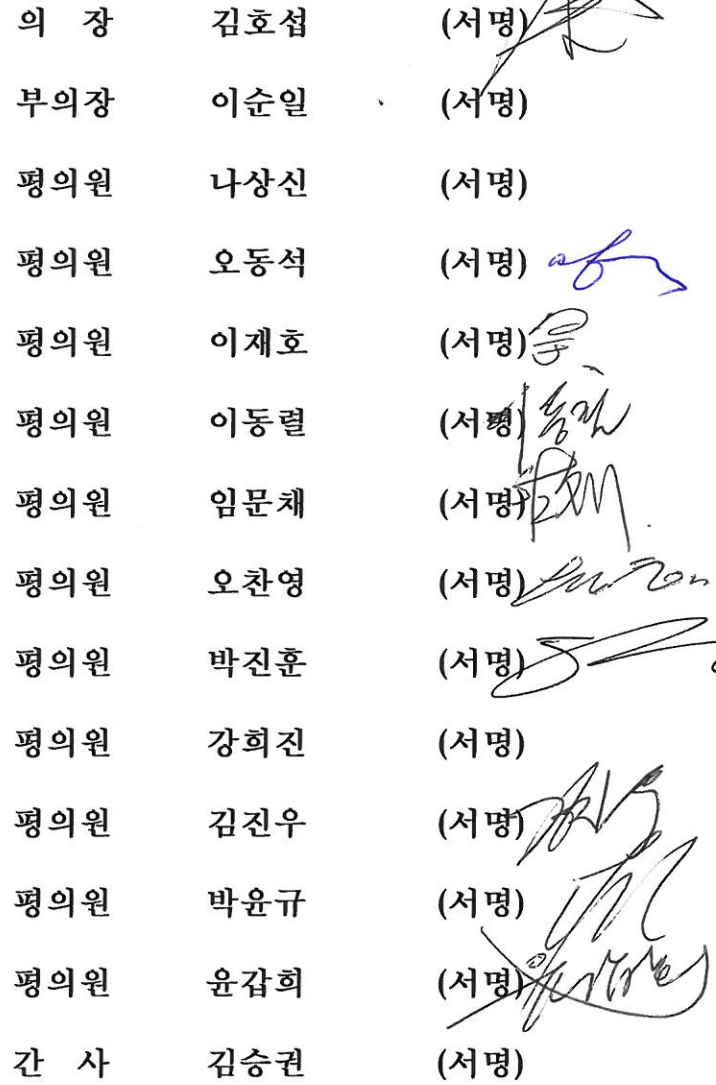 의 장 김호섭 (서명)
부의장 이순일 (서명)
평의원 나상신 (서명)
평의원 오동석 (서명)
평의원 이재호 (서명)
평의원 이동렬 (서명)
평의원 임문채 (서명)
평의원 오찬영 (서명)
평의원 박진훈 (서명)
평의원 강희진 (서명)
평의원 김진우 (서명)
평의원 박윤규 (서명)
평의원 윤갑희 (서명)
간 사 김승권 (서명)